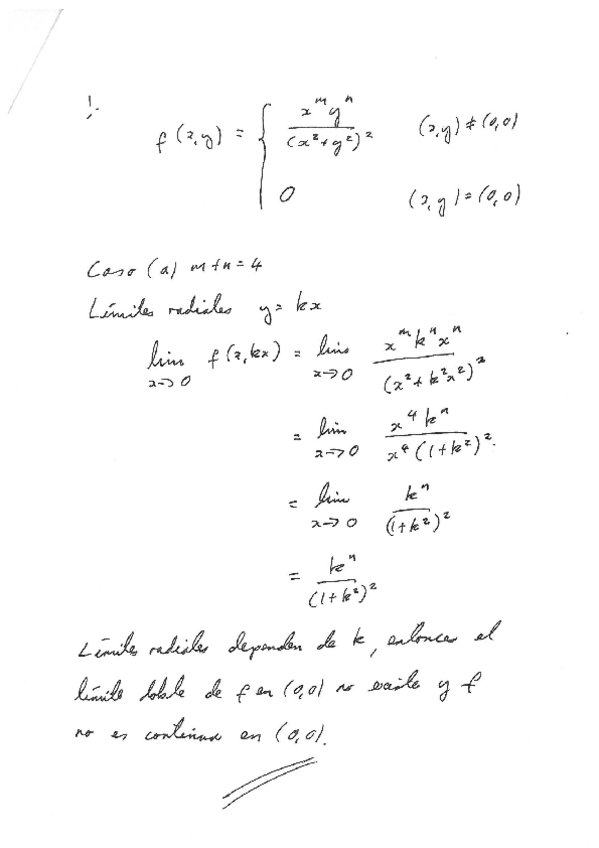 1.-
f(x,y) = { x^m y^n / (x²+y²)²   (x,y) ≠ (0,0)
0   (x,y) = (0,0)
Caso (a) m+n=4
Límites radiales y = kx
lim x→0 f(x,kx) = lim x→0 x^m k^n x^n / (x²+k²x²)²
= lim x→0 x⁴ k^n / x⁴(1+k²)².
= lim x→0 k^n / (1+k²)²
= k^n / (1+k²)²
Límites radiales dependen de k, entonces el
límite doble de f en (0,0) no existe y f
no es continua en (0,0).